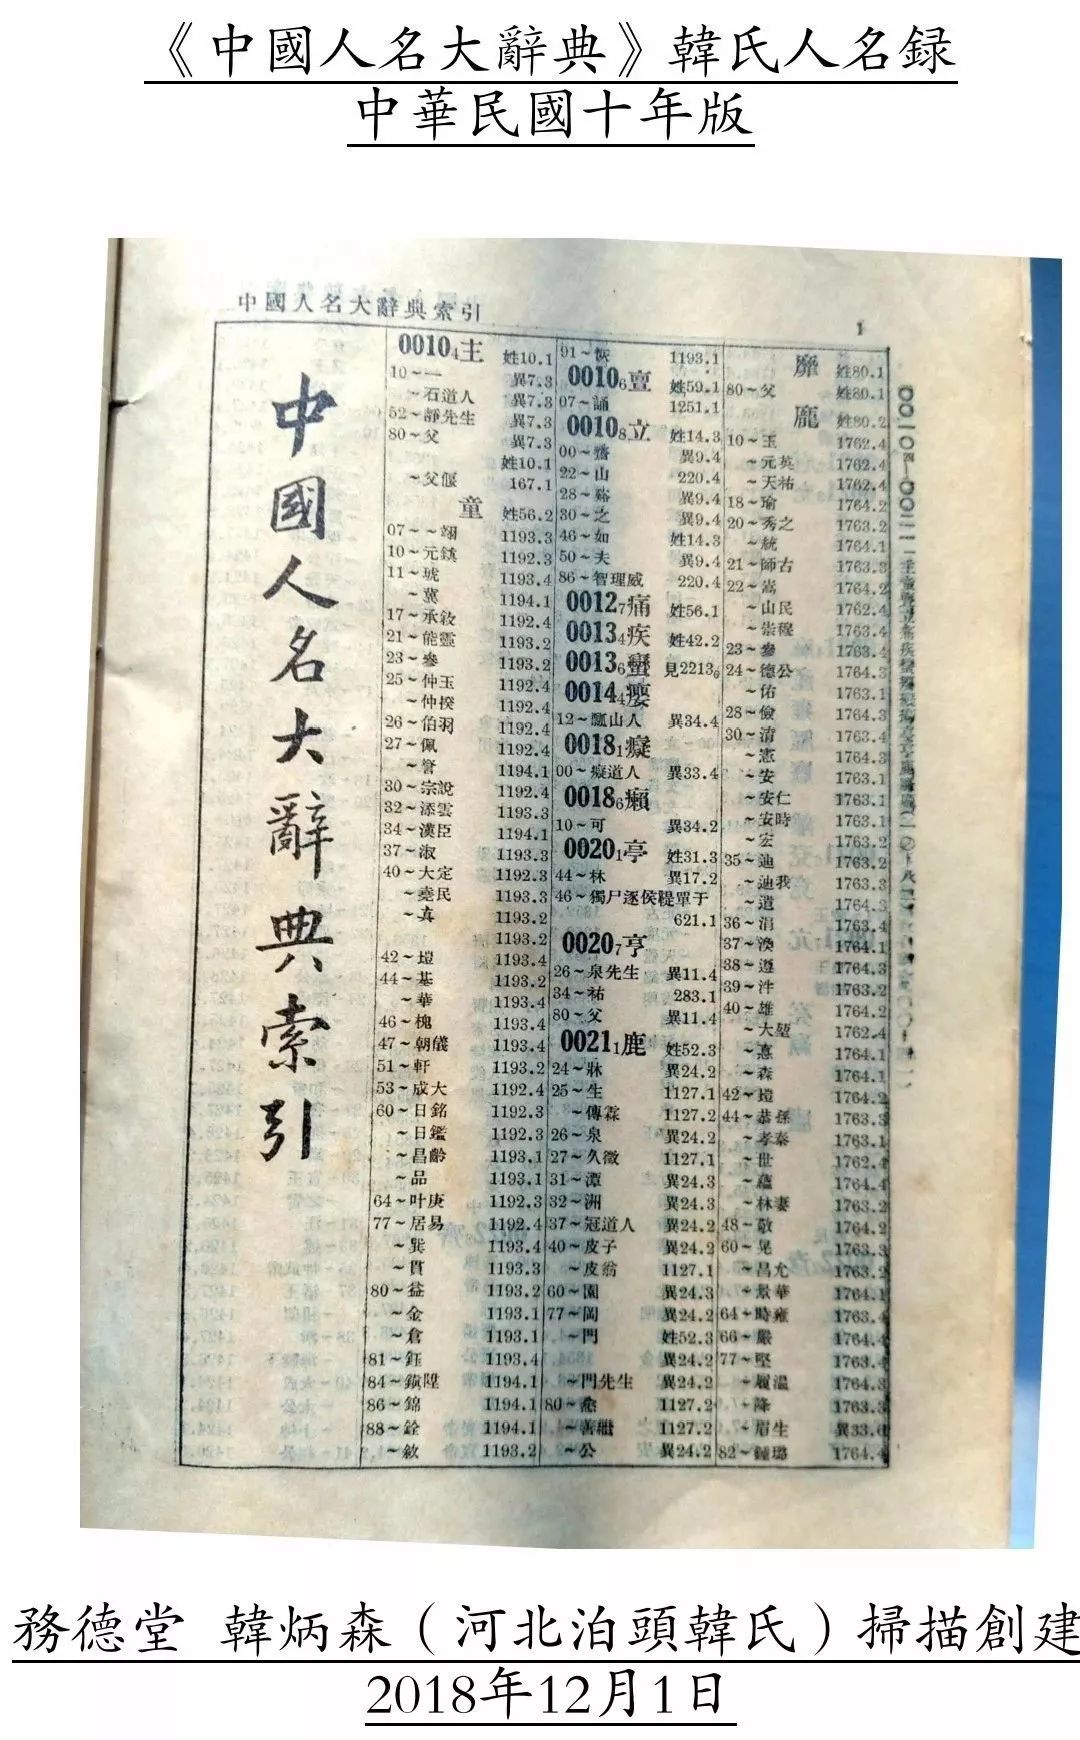 《中國人名大辭典》韓氏人名録
中華民國十年版
中國人名大辭典索引
1
中國人名大辭典索引
0010₄主 姓10.1
10～一 異7.3
～石道人 異7.3
52～靜先生 異7.3
80～父 異7.3
姓10.1
～父偃 167.1
童 姓56.2
07～～翊 1193.3
10～元鎮 1192.3
11～琥 1193.4
～冀 1194.1
17～承敘 1192.4
21～能靈 1193.2
23～參 1193.2
25～仲玉 1192.4
～仲揆 1192.4
26～伯羽 1192.4
27～佩 1192.4
～督 1194.1
30～宗說 1192.4
32～添雲 1193.3
34～漢臣 1194.1
37～淑 1193.3
40～大定 1192.3
～堯民 1193.3
～真 1193.2
1193.2
42～塏 1193.4
44～基 1193.2
～華 1193.4
46～槐 1193.4
47～朝儀 1193.4
51～軒 1193.2
53～成大 1192.4
60～日銘 1192.3
～日鑑 1192.3
～昌齡 1193.1
～品 1193.1
64～叶庚 1192.3
77～居易 1192.4
～巽 1193.4
～貫 1193.3
80～益 1193.2
～金 1193.1
～倉 1193.1
81～鈺 1193.4
84～鎮陞 1194.1
86～錦 1194.1
88～銓 1194.1
～敘 1193.2
91～恢 1193.1
0010₆亶 姓59.1
07～誦 1251.1
0010₈立 姓14.3
00～齋 異9.4
22～山 220.4
28～谿 異9.4
30～之 異9.4
46～如 姓14.3
50～夫 異9.4
86～智理威 220.4
0012₇痛 姓56.1
0013₄疾 姓42.2
0013₆蠻 見2213₆
0014₄癭
12～瓢山人 異34.4
0018₁癡
00～癡道人 異33.4
0018₆癩
10～可 異34.2
0020₁亭 姓31.3
44～林 異17.2
46～獨尸逐侯鞮單于
621.1
0020₇亨
26～泉先生 異11.4
34～祐 283.1
80～父 異11.4
0021₁鹿 姓52.3
24～牀 異24.2
25～生 1127.1
～傳霖 1127.2
26～泉 異24.2
27～久徵 1127.1
31～潭 異24.3
32～洲 異24.3
37～冠道人 異24.2
40～皮子 異24.2
～皮翁 1127.1
60～園 異24.3
77～岡 異24.2
～門 姓52.3
異24.2
～門先生 異24.2
80～悆 1127.2
～善繼 1127.2
～公 異24.2
靡 姓80.1
80～父 姓80.1
龐 姓80.2
10～玉 1762.4
～元英 1762.4
～天祐 1762.4
18～瑜 1764.2
20～秀之 1763.2
～統 1764.1
21～師古 1763.3
22～嵩 1764.2
～山民 1762.4
～崇穆 1763.4
23～參 1763.4
24～德公 1764.3
～佑 1763.1
28～儉 1764.3
30～清 1763.4
～憲 1764.3
～安 1763.1
～安仁 1763.1
～安時 1763.1
～宏 1763.2
35～迪 1763.2
～迪我 1763.3
～道 1764.3
36～涓 1763.4
37～渙 1764.1
38～遵 1764.3
39～泮 1763.2
40～雄 1764.2
～大堃 1762.4
～熹 1764.1
～森 1764.1
42～塏 1764.2
44～恭孫 1763.3
～孝泰 1763.1
～世 1762.4
～蘊 1764.4
～林妻 1763.2
48～敬 1764.2
60～晃 1763.3
～昌允 1763.2
～景華 1764.1
64～時雍 1763.4
66～嚴 1764.4
77～堅 1763.4
～履溫 1764.3
～降 1763.3
～眉生 異33.6
82～鍾璐 1764.4
務德堂 韓炳森（河北泊頭韓氏）掃描創建
2018年12月1日